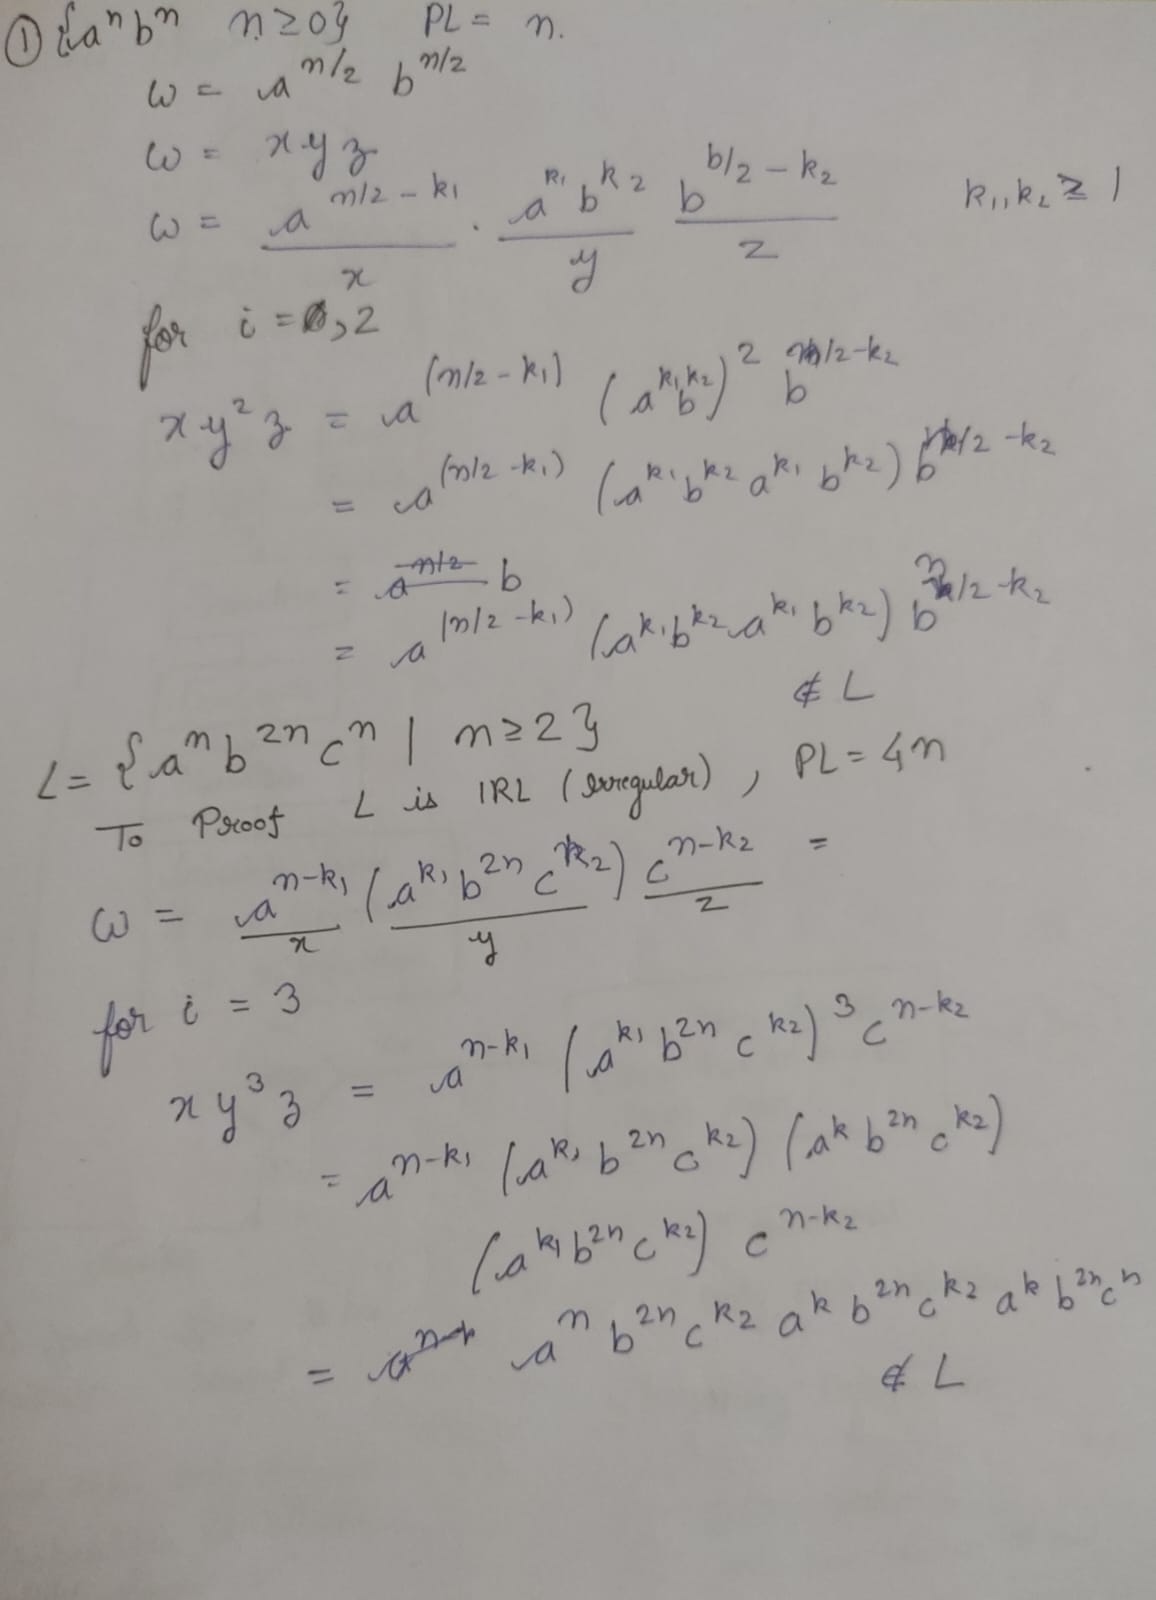 ① {aⁿbⁿ n≥0} PL = n.
w = a^n/2 b^n/2
w = xyz
w = a^n/2-k₁ . a^k₁ b^k₂ b^b/2-k₂ k₁,k₂ ≥ 1
x y z
for i = 0,2
xy²z = a^(n/2-k₁) (a^k₁ b^k₂)² b^n/2-k₂
= a^(n/2-k₁) (a^k₁ b^k₂ a^k₁ b^k₂) b^n/2-k₂
= a^n/2 b
= a^(n/2-k₁) (a^k₁ b^k₂ a^k₁ b^k₂) b^n/2-k₂
∉ L
L = {aⁿ b²ⁿ cⁿ | n≥2}
To Proof L is IRL (Irregular), PL = 4n
w = a^n-k₁ (a^k₁ b^2n c^k₂) c^n-k₂ =
x y z
for i = 3
xy³z = a^n-k₁ (a^k₁ b^2n c^k₂)³ c^n-k₂
= a^n-k₁ (a^k₁ b^2n c^k₂) (a^k b^2n c^k₂)
(a^k₁ b^2n c^k₂) c^n-k₂
= a^n b^2n c^k₂ a^k b^2n c^k₂ a^k b^2n c^n
∉ L